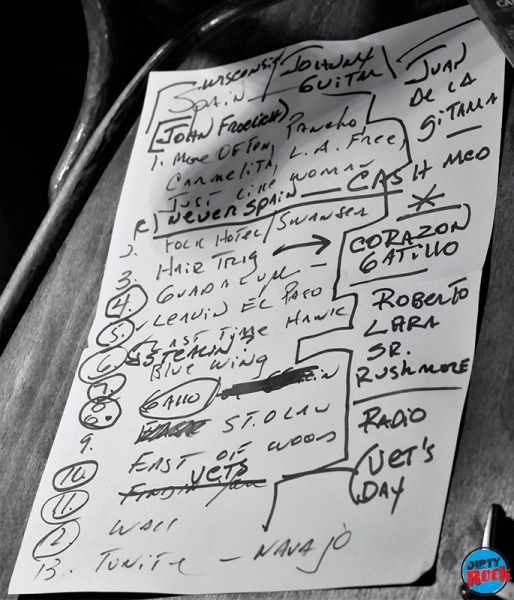 WISCONSIN
SPAIN / JOHNNY GUITAR
JOHN FROELICH)
1. MORE OFTEN, PANCHO
CARMELITA, L.A. FREE,
JUST LIKE WOMAN
NEVER SPAIN — CASH MED
2. FOLK HOTEL / SWANSEA
3. HAIR TRIG
4. GUADALUPE —
5. LEAVIN EL PASO
6. LAST TIME HAWK
STEALIN
7. BLUE WING
8. GALLO
9. ST. OLAV
10. EAST OF WOODS
11. VETS
12. WALL
13. TONITE — NAVAJO
JUAN
DE LA
GITANA
CORAZON
GATILLO
ROBERTO
LARA
SR.
RUSHMORE
RADIO
VET'S
DAY
DIRTY
Rock